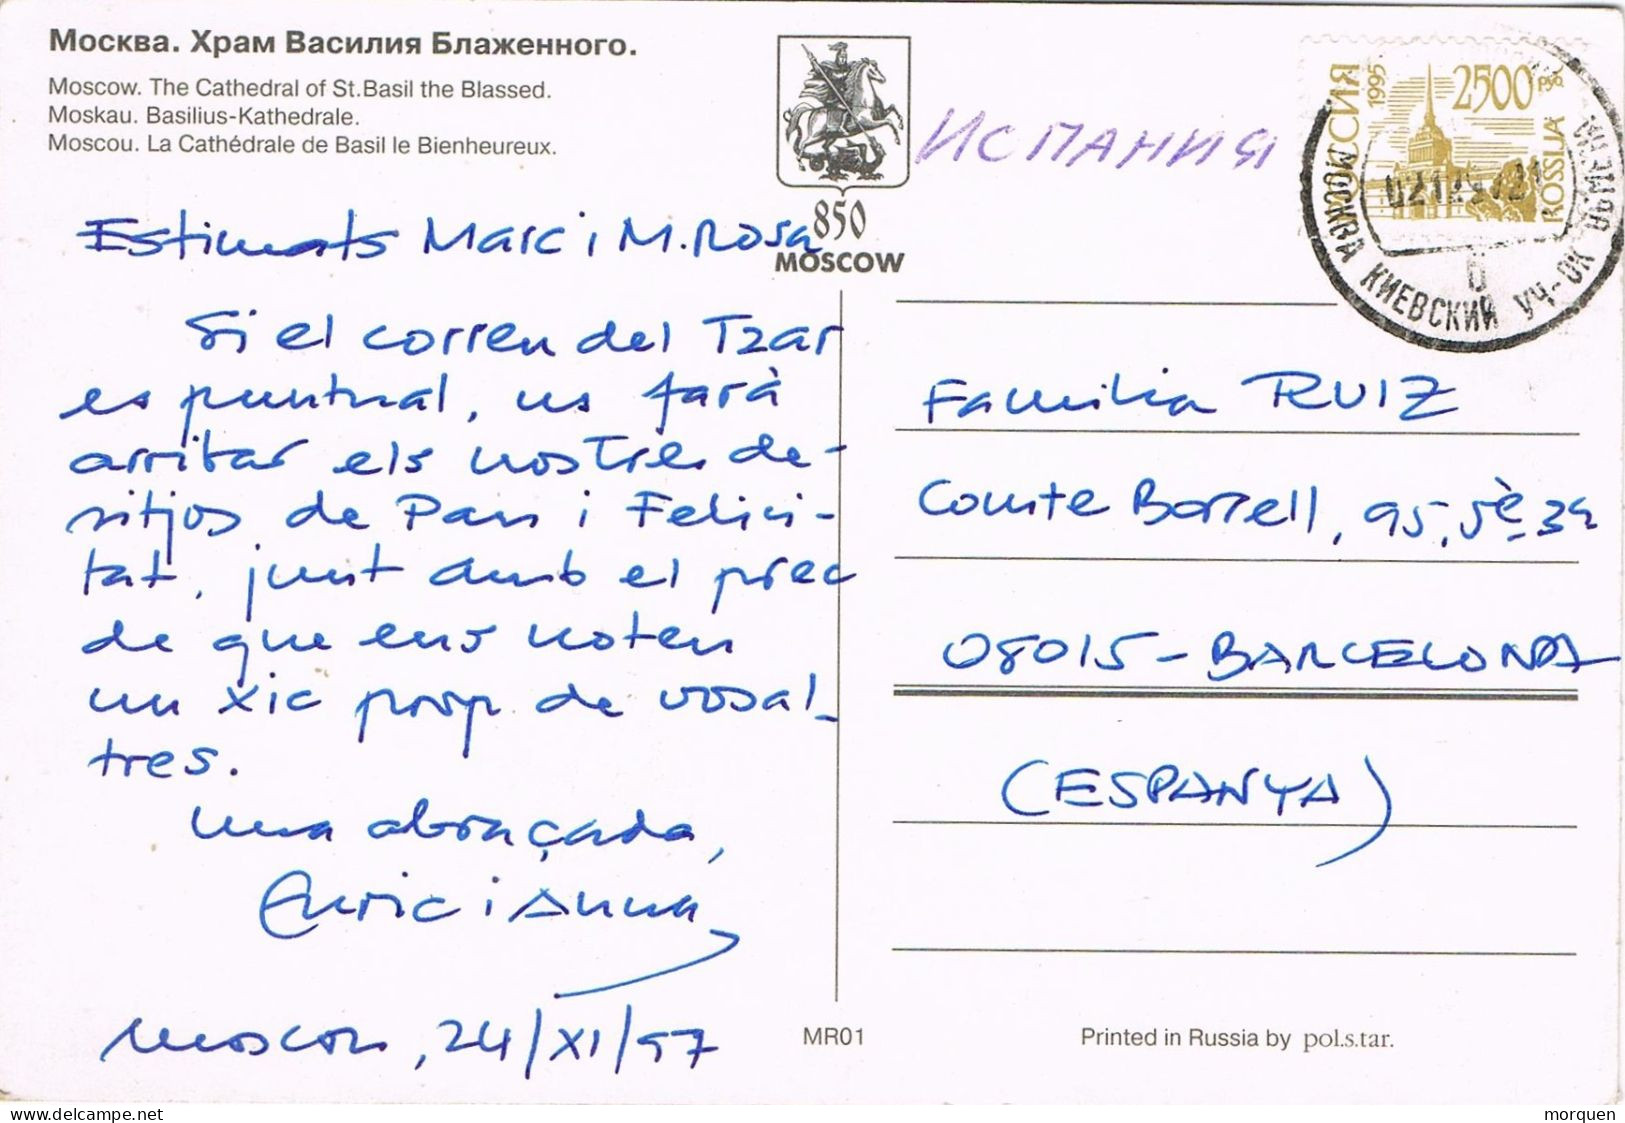 Москва. Храм Василия Блаженного.
Moscow. The Cathedral of St.Basil the Blassed.
Moskau. Basilius-Kathedrale.
Moscou. La Cathédrale de Basil le Bienheureux.
850
MOSCOW
ИСПАНИЯ
РОССИЯ 1995
2500 руб
ROSSIJA
МОСКВА КИЕВСКИЙ УЧ-ОК
6
Estimats Marc i M. Rosa
Si el correu del Tzar
es puntual, us farà
arribar els nostres de-
sitjos de Pau i Felici-
tat, junt amb el prec
de que ens noteu
un xic prop de vosal-
tres.
Una abraçada,
Enric i Anna
Moscou, 24/XI/97
Familia RUIZ
Comte Borrell, 95, 5è 3a
08015 - BARCELONA
(ESPANYA)
MR01
Printed in Russia by pol.s.tar.
morquen